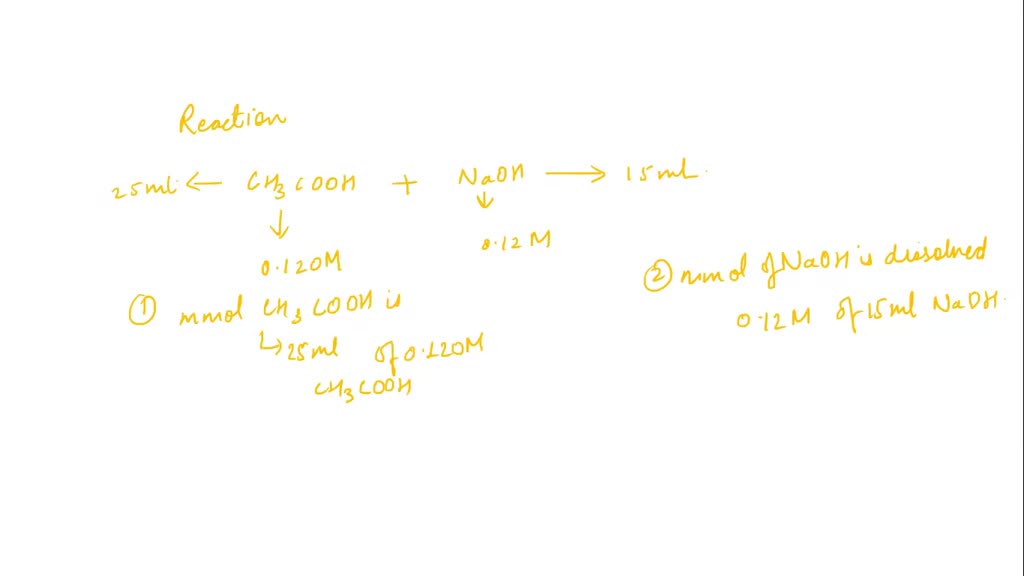 Reaction
25ml ← CH3COOH + NaOH → 15ml.
↓ ↓
0.120M 0.12M
① mmol CH3COOH is
↳ 25ml of 0.120M
CH3COOH
② mmol of NaOH is dissolved
0.12M of 15ml NaOH.